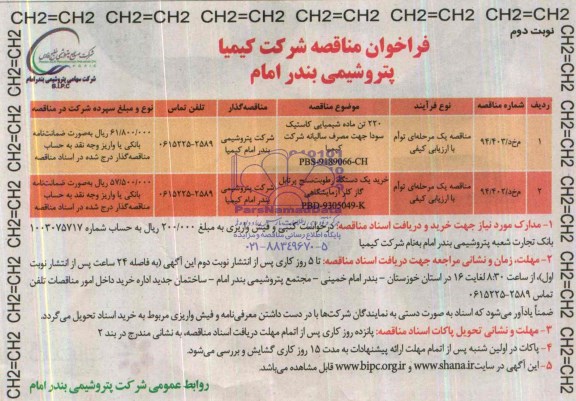 CH2=CH2 CH2=CH2 CH2=CH2 CH2=CH2 CH2=CH2 CH2=CH2 CH2=CH2
نوبت دوم
فراخوان مناقصه شرکت کیمیا
پتروشیمی بندر امام
شرکت سهامی پتروشیمی بندر امام
B.I.P.C
ردیف شماره مناقصه نوع فرآیند موضوع مناقصه مناقصه‌گذار تلفن تماس نوع و مبلغ سپرده شرکت در مناقصه
۱ م‌خ‌د/۹۴/۴۰۳ مناقصه یک مرحله‌ای توأم با ارزیابی کیفی ۲۲۰ تن ماده شیمیایی کاستیک سودا جهت مصرف سالیانه شرکت PBS-9189066-CH شرکت پتروشیمی بندر امام کیمیا ۰۶۱۵۲۲۵-۲۵۸۹ ۶۱/۸۰۰/۰۰۰ ریال به‌صورت ضمانت‌نامه بانکی یا واریز وجه نقد به حساب مناقصه‌گذار درج شده در اسناد مناقصه
۲ م‌خ‌د/۹۴/۴۰۲ مناقصه یک مرحله‌ای توأم با ارزیابی کیفی خرید یک دستگاه رطوبت‌سنج پرتابل گاز کلر آزمایشگاهی PBD-9305049-K شرکت پتروشیمی بندر امام کیمیا ۰۶۱۵۲۲۵-۲۵۸۹ ۵۷/۵۰۰/۰۰۰ ریال به‌صورت ضمانت‌نامه بانکی یا واریز وجه نقد به حساب مناقصه‌گذار درج شده در اسناد مناقصه
ParsNamadData
پایگاه اطلاع رسانی مناقصه و مزایده
۰۲۱-۸۸۳۴۹۶۷۰-۵
۱- مدارک مورد نیاز جهت خرید و دریافت اسناد مناقصه: درخواست کتبی و فیش واریزی به مبلغ ۲۰۰/۰۰۰ ریال به حساب شماره ۱۰۰۳۰۷۵۷۱۷
بانک تجارت شعبه پتروشیمی بندر امام به‌نام شرکت کیمیا
۲- مهلت، زمان و نشانی مراجعه جهت دریافت اسناد مناقصه: تا ۵ روز کاری پس از انتشار نوبت دوم این آگهی (به فاصله ۲۴ ساعت پس از انتشار نوبت
اول)، از ساعت ۸:۳۰ لغایت ۱۶ در استان خوزستان - بندر امام خمینی - مجتمع پتروشیمی بندر امام - ساختمان جدید اداره خرید داخل امور مناقصات تلفن
تماس ۰۶۱۵۲۲۵-۲۵۸۹
ضمناً یادآور می‌شود که اسناد به صورت دستی به نمایندگان شرکت‌ها با در دست داشتن معرفی‌نامه و فیش واریزی مربوط به خرید اسناد تحویل می‌گردد.
۳- مهلت و نشانی تحویل پاکات اسناد مناقصه: پانزده روز کاری پس از اتمام مهلت دریافت اسناد مناقصه، به نشانی مندرج در بند ۲
۴- پاکات در اولین شنبه پس از اتمام مهلت ارائه پیشنهادات به مدت ۱۵ روز کاری گشایش و بررسی می‌شود.
۵- این آگهی در سایت www.shana.ir و www.bipc.org.ir قابل مشاهده می‌باشد.
روابط عمومی شرکت پتروشیمی بندر امام
CH2=CH2 CH2=CH2 CH2=CH2 CH2=CH2
CH2=CH2 CH2=CH2 CH2=CH2 CH2=CH2